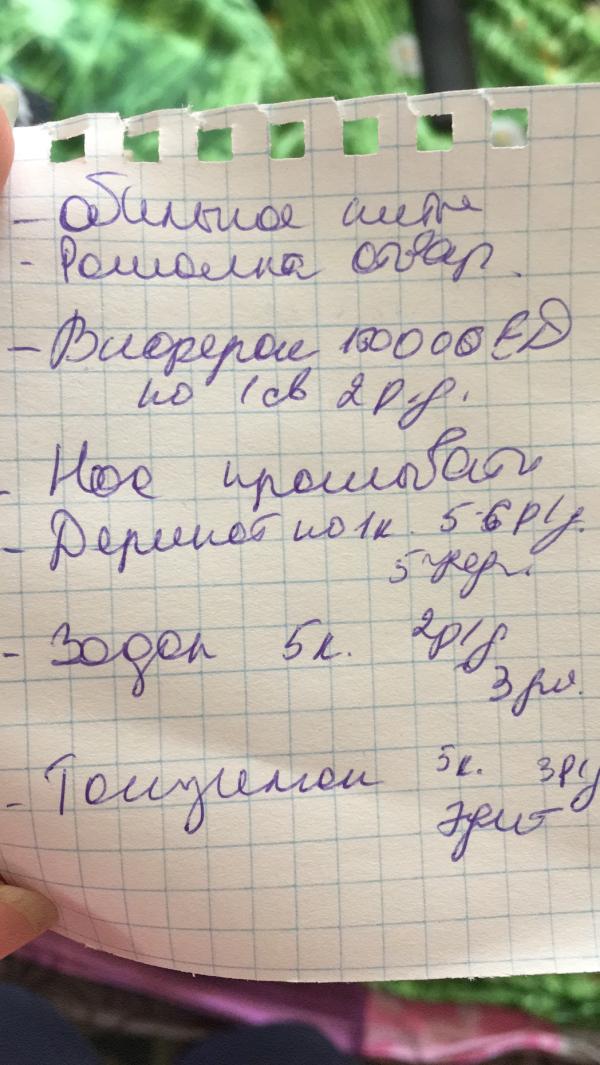 - Обильное питье
- Ромашка отвар.
- Виферон 150000 ЕД
по 1 св 2 р/д.
- Нос промывать
- Деринат по 1к. 5-6 р/д.
- Зодак 5к. 2р/д
- Тонзилгон 5к. 3р/д
7 дней